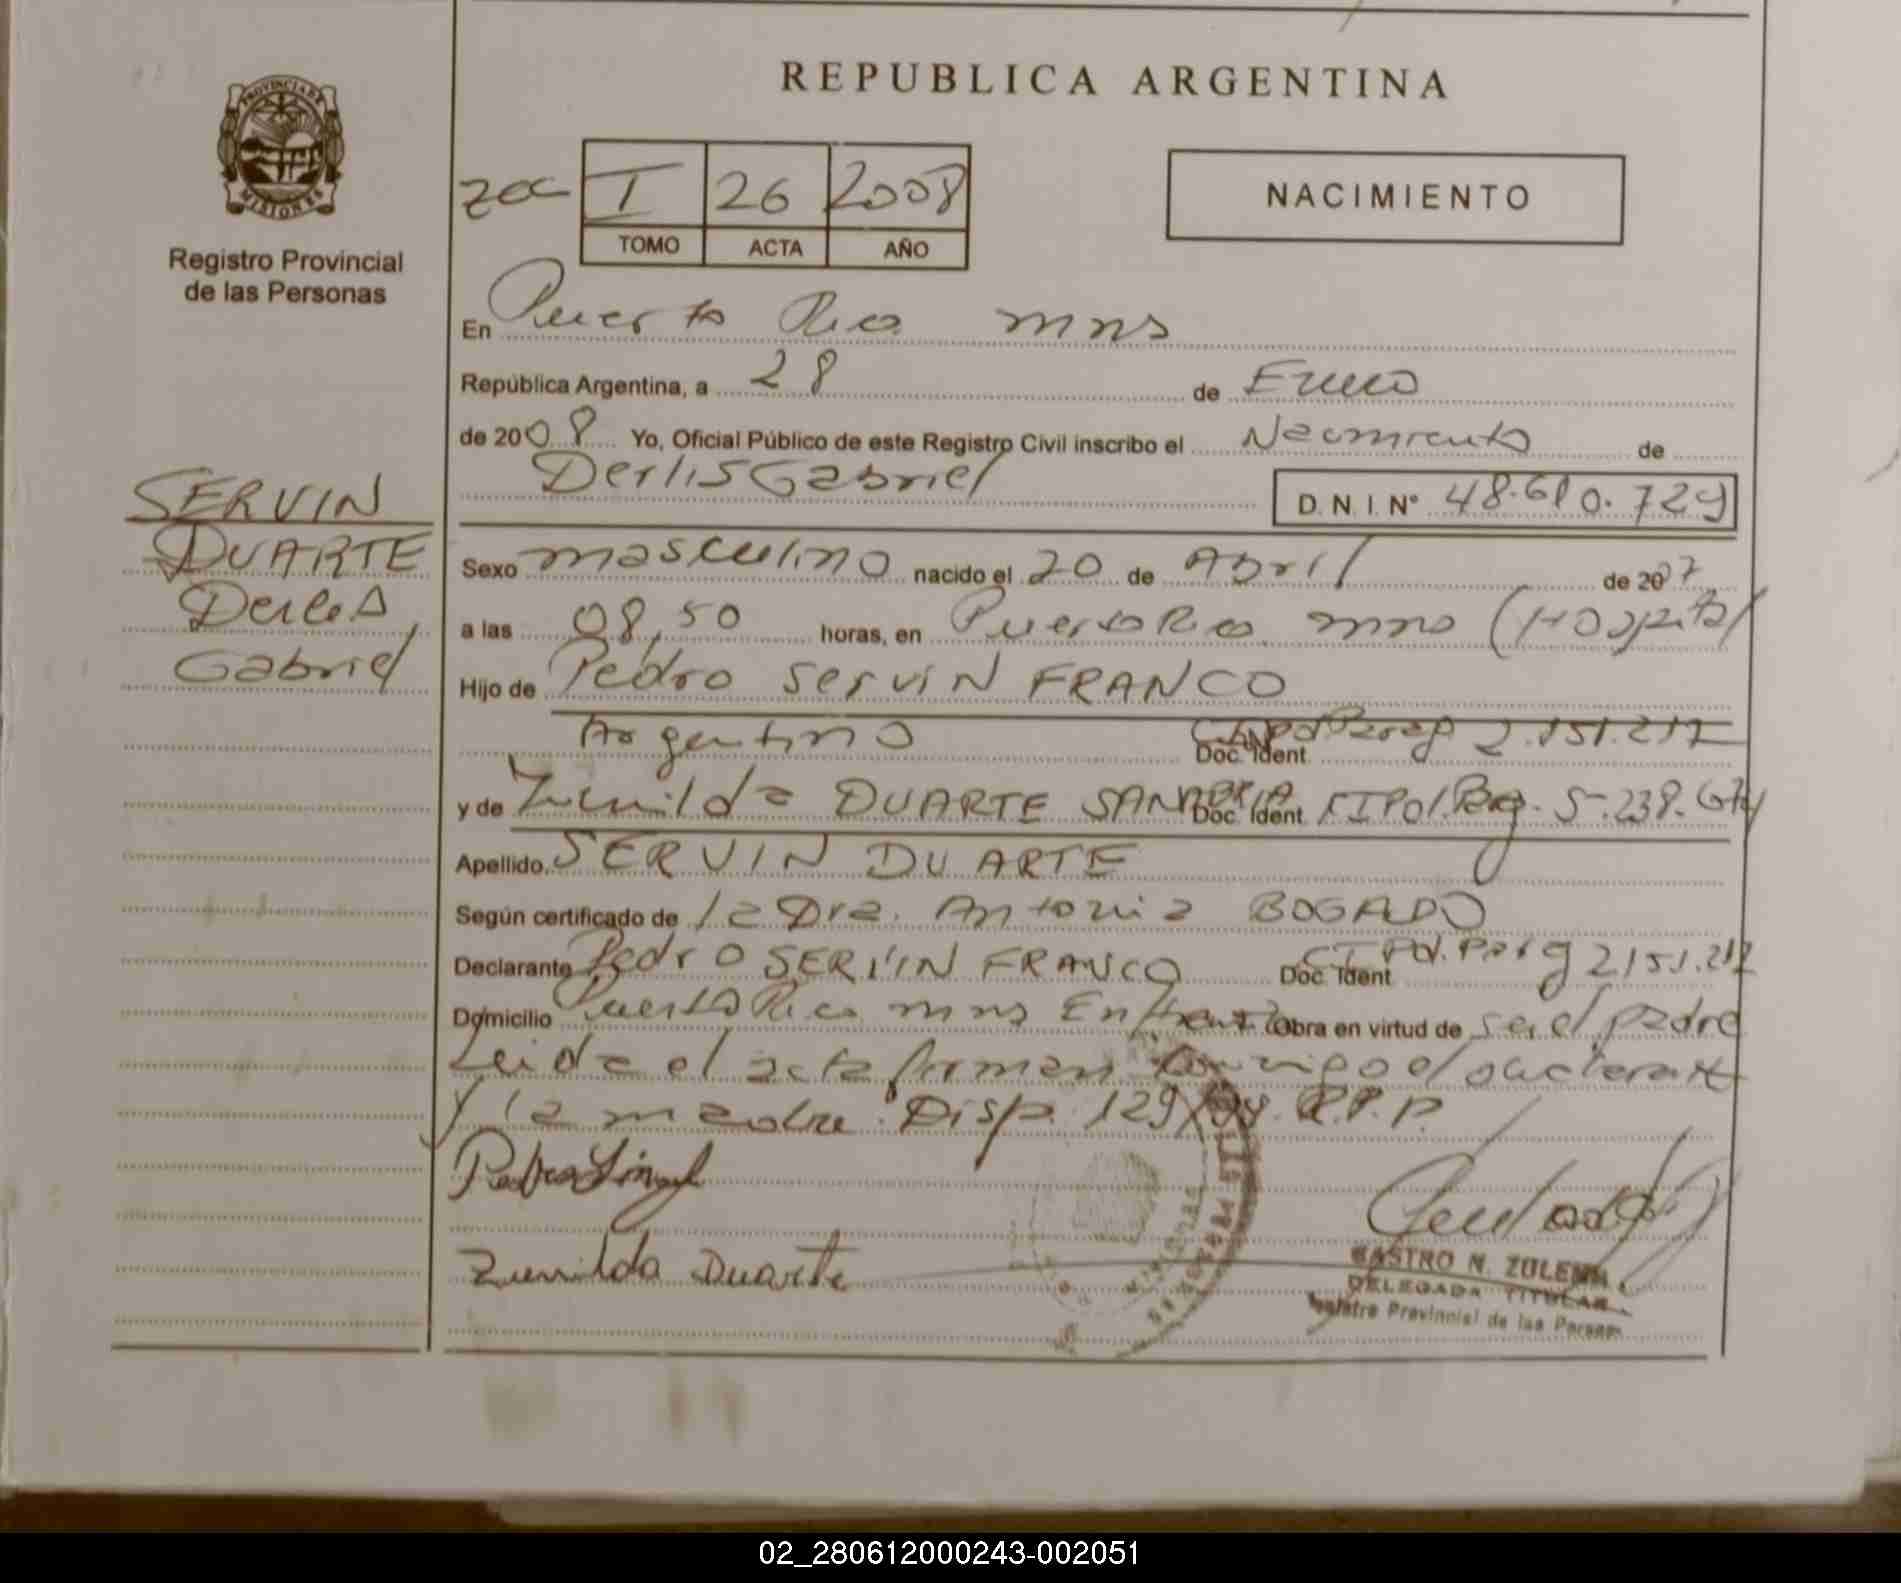 REPUBLICA ARGENTINA
PROVINCIA DE
MISIONES
Registro Provincial
de las Personas
I 26 2008
TOMO ACTA AÑO
NACIMIENTO
En Puerto Rico mns
República Argentina, a 28 de Enero
de 2008 Yo, Oficial Público de este Registro Civil inscribo el Nacimiento de
Derlis Gabriel D. N. I. N° 48.610.729
SERVIN
DUARTE
Derlis
Gabriel
Sexo masculino nacido el 20 de Abril de 2007
a las 08,50 horas, en Puerto Rico mns (Hospital
Hijo de Pedro Servin FRANCO
Argentino Doc. Ident. 2.151.217
y de Zunilda DUARTE SANABRIA Doc. Ident. CIPol. Parg. 5.238.674
Apellido SERVIN DUARTE
Según certificado de la Dra. Antonia BOGADO
Declarante Pedro SERVIN FRANCO Doc. Ident. CI Pol. Parg 2151.217
Domicilio Puerto Rico mns Obra en virtud de ser el padre
Leida el acta firman conmigo el declarante
y la madre. Disp. 129/98. R.P.P.
Zunilda Duarte
CASTRO N. ZULEMA
DELEGADA TITULAR
Registro Provincial de las Personas
02_280612000243-002051